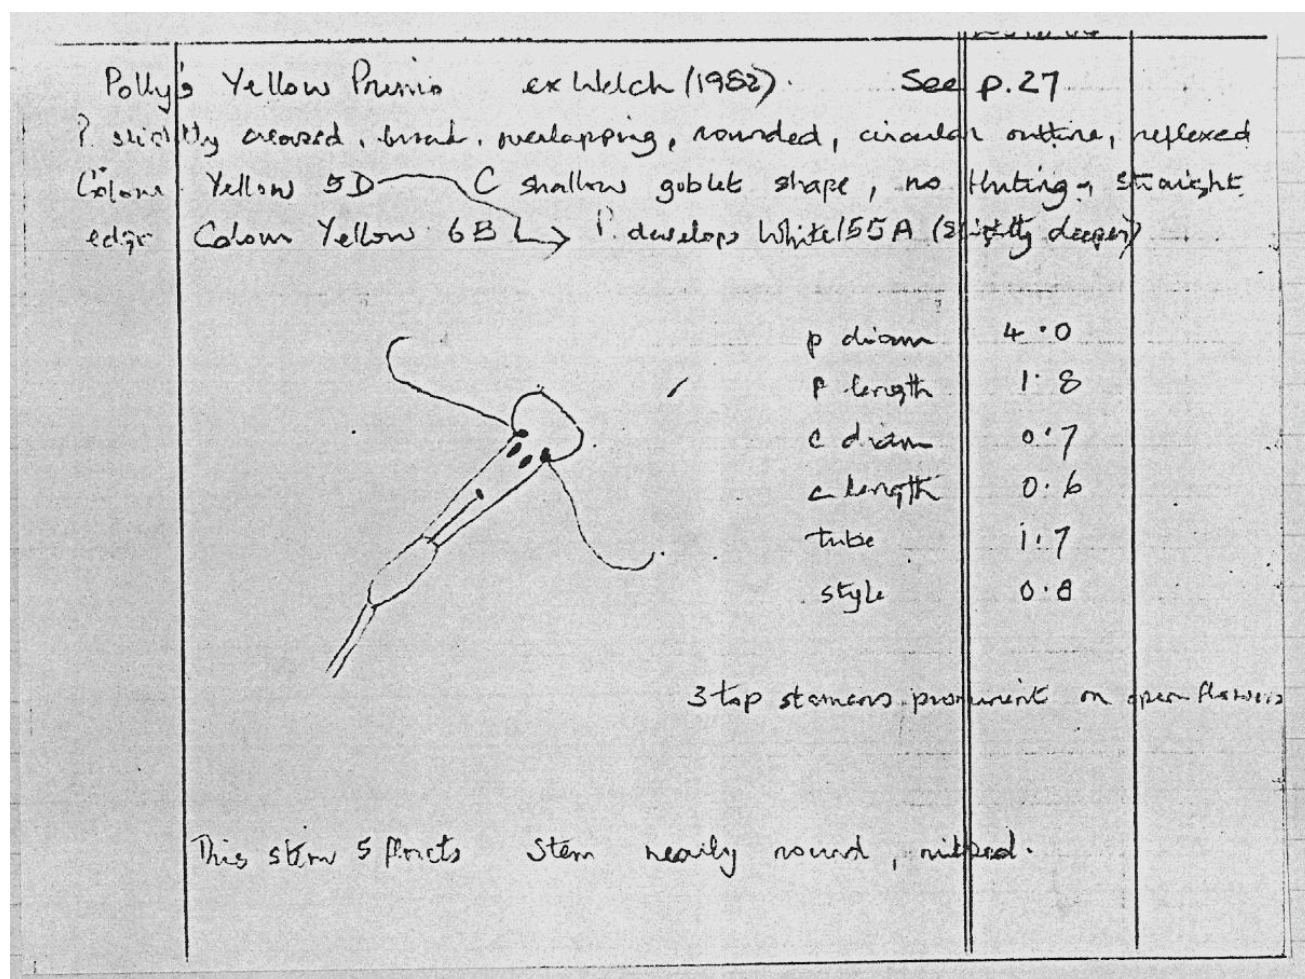 Polly's Yellow ex Welch (1982). See p.27
P slightly creased, broad, overlapping, rounded, circular outline, reflexed
Colour Yellow 5D C shallow goblet shape, no fluting, straight
edge Colour Yellow 6B P develops White 155A (slightly deeper)
p diam 4.0
p length 1.8
c diam 0.7
c length 0.6
tube 1.7
style 0.8
3 top stamens prominent on open flowers
This stem 5 florets Stem nearly round, ribbed.